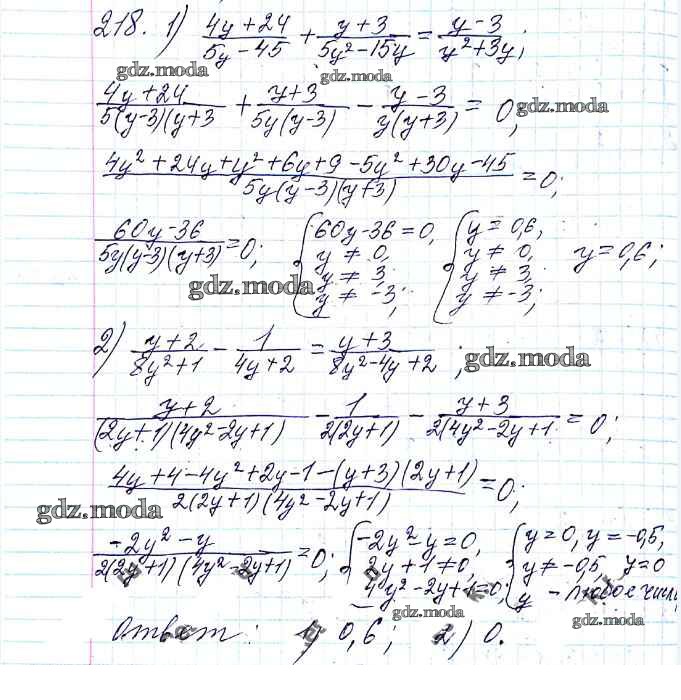 218. 1) (4y+24)/(5y-45) + (y+3)/(5y²-15y) = (y-3)/(y²+3y);
gdz.moda gdz.moda
(4y+24)/(5(y-3)(y+3) + (y+3)/(5y(y-3)) - (y-3)/(y(y+3)) = 0; gdz.moda
(4y²+24y+y²+6y+9-5y²+30y-45)/(5y(y-3)(y+3)) = 0;
(60y-36)/(5y(y-3)(y+3)) = 0; { 60y-36=0, y≠0, y≠3, y≠-3; { y=0,6, y≠0, y≠3, y≠-3; y=0,6;
gdz.moda
2) (y+2)/(8y²+1) - 1/(4y+2) = (y+3)/(8y²-4y+2); gdz.moda
(y+2)/((2y+1)(4y²-2y+1)) - 1/(2(2y+1)) - (y+3)/(2(4y²-2y+1) = 0;
(4y+4-4y²+2y-1-(y+3)(2y+1))/(2(2y+1)(4y²-2y+1)) = 0;
gdz.moda
(-2y²-y)/(2(2y+1)(4y²-2y+1)) = 0; { -2y²-y=0, 2y+1≠0, 4y²-2y+1=0; { y=0, y=-0,5, y≠-0,5, y=0 y - любое число
gdz.moda gdz.moda
Ответ: 1) 0,6; 2) 0.